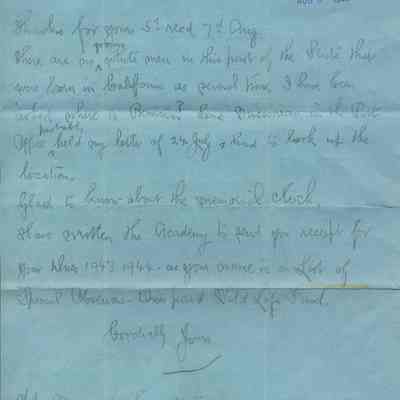 Thanks for yours 5th recd 7th Aug.
There are no young white men in this part of the State that
were born in California as several times I have been
asked where is Benicia? Some in the Post
Office probably held my letter of 24 July & had to look up the
location.
Glad to know about the memorial clock.
Have written the Academy to send you receipt for
your dues 1943 1944 - as your name is on List of
Cordially Yours